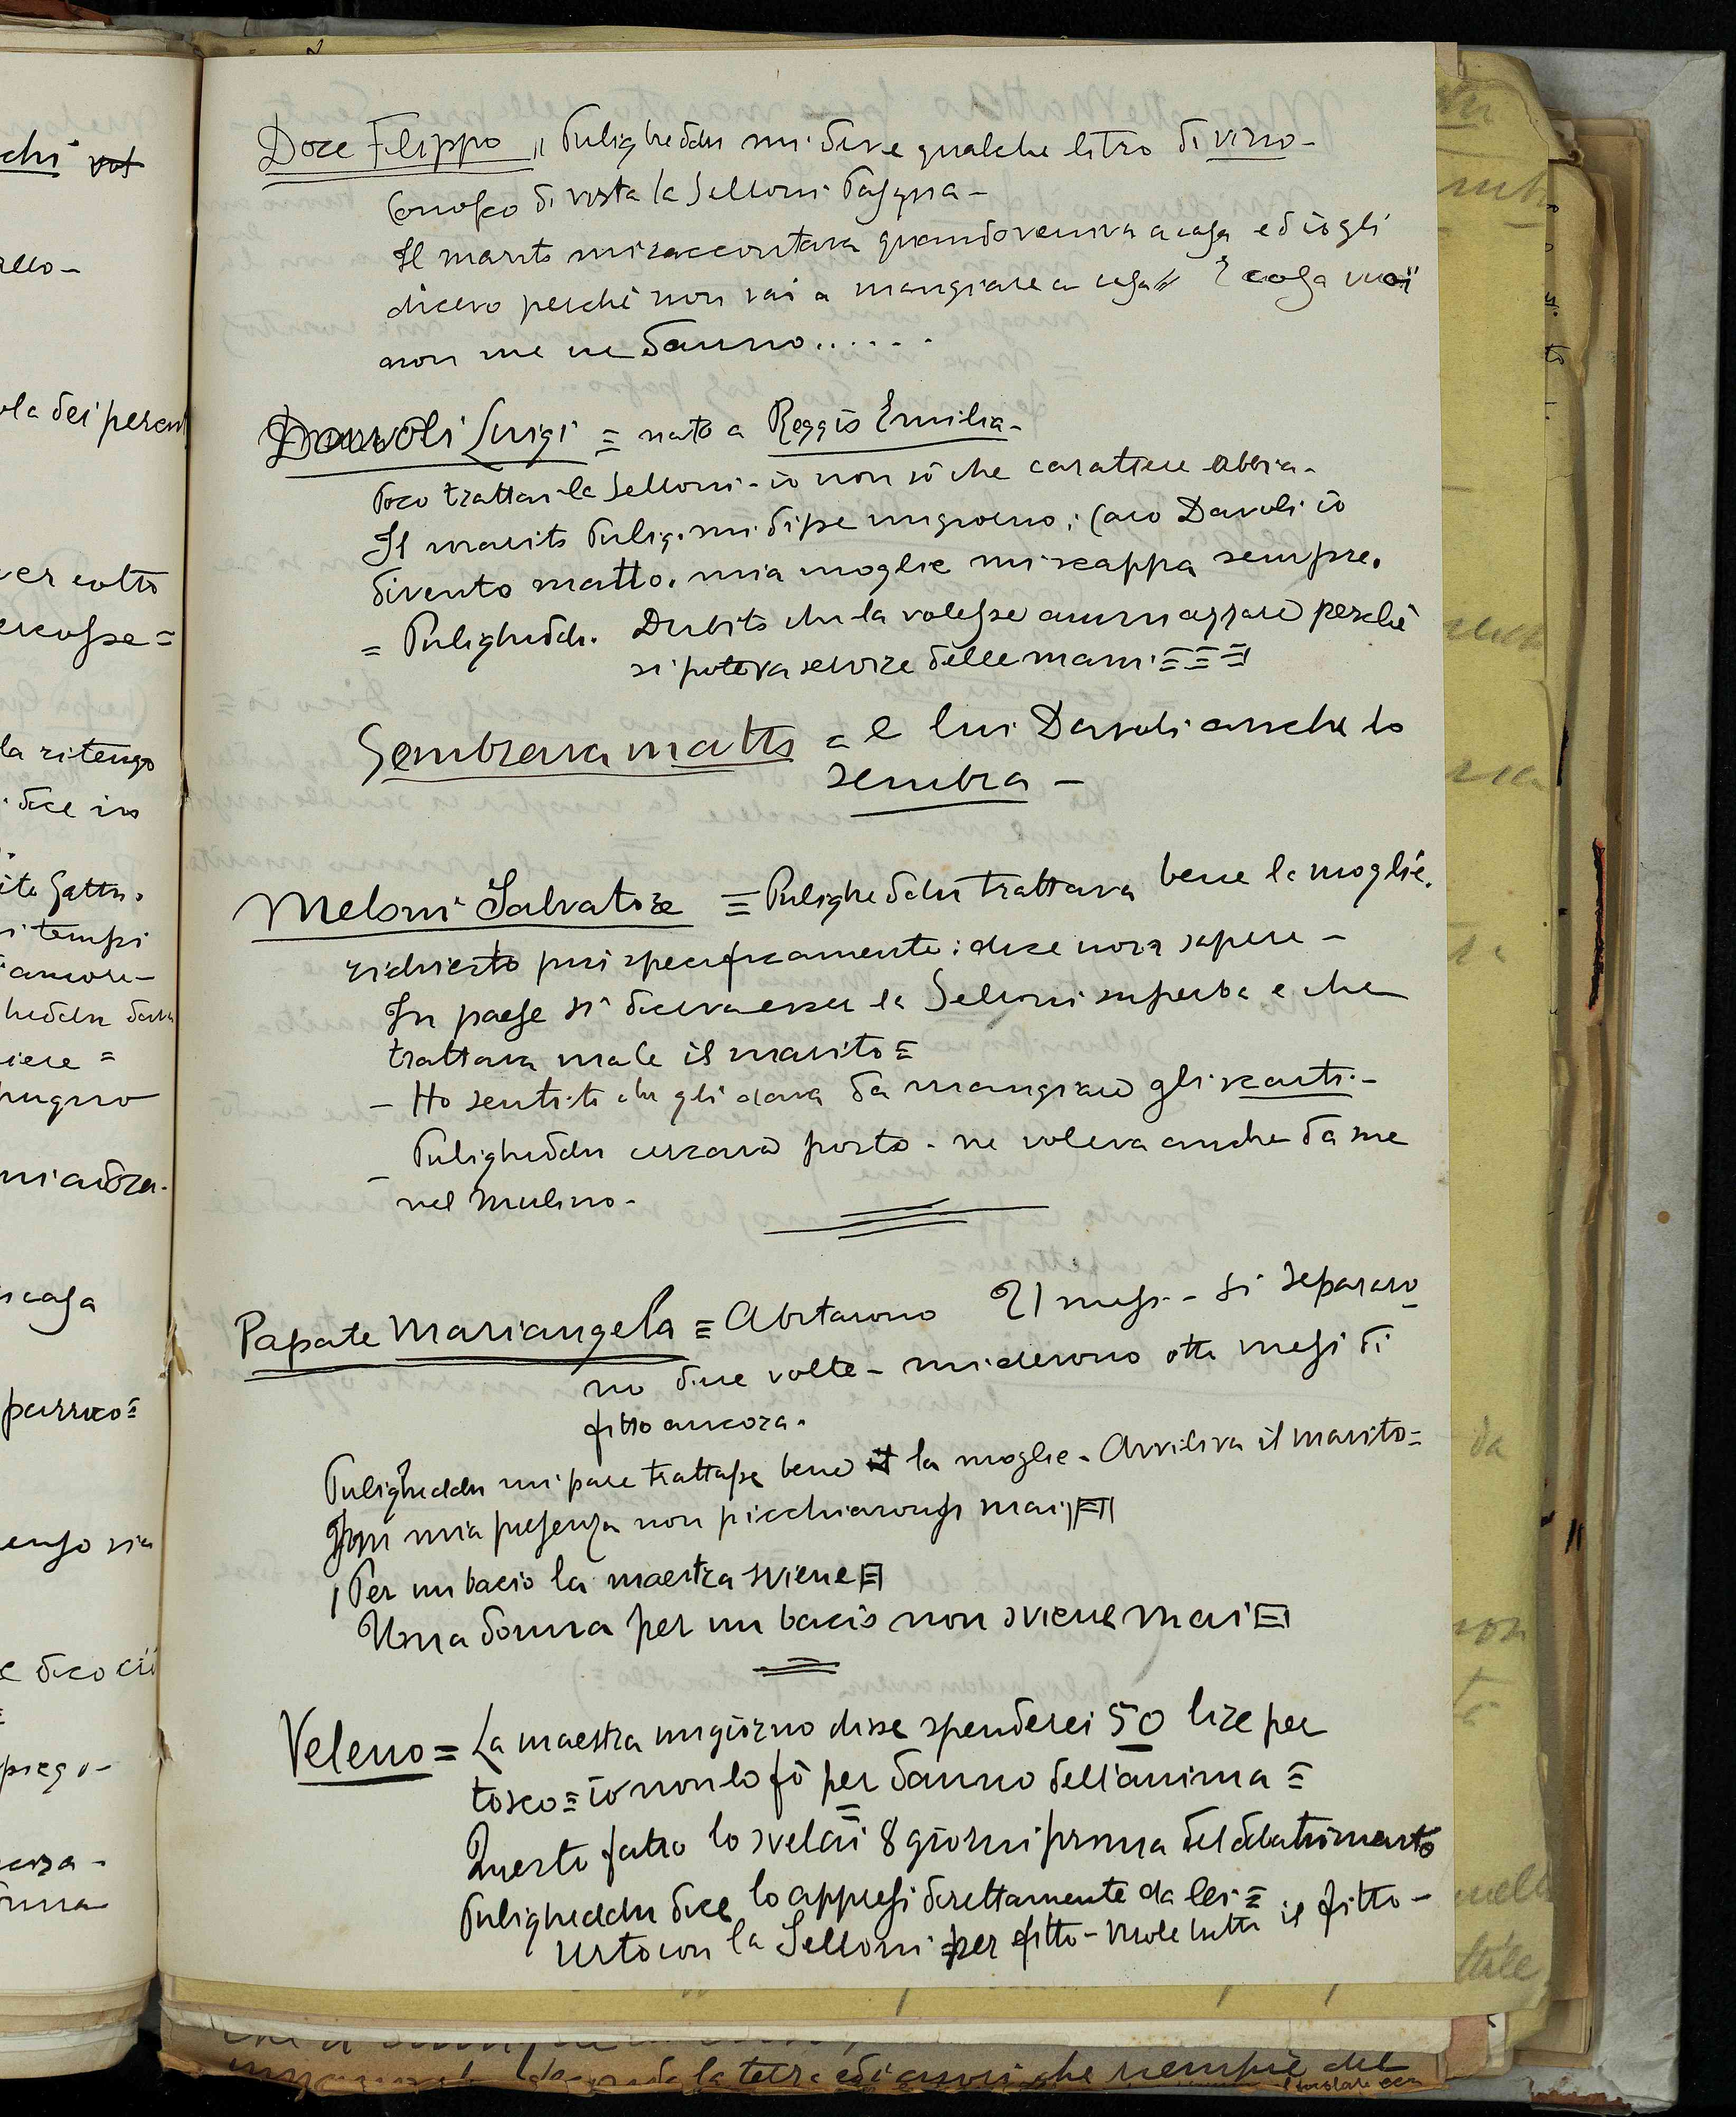 Doce Filippo " Puligheddu mi deve qualche litro di vino -
Conosco di vista la Selloni
Il marito mi raccontava quando veniva a casa ed io gli
dicevo perchè non vai a mangiare a casa E cosa vuoi
non me ne danno......
Davoli Luigi = nato a Reggio Emilia -
Poco trattai la Selloni - io non sò che carattere abbia -
Il marito Pulig. mi disse un giorno: Caro Davoli io
divento matto. mia moglie mi scappa sempre.
= Puligheddu. Dubito che la volesse ammazzare perchè
si poteva servire delle mani =
Sembrava matto = e lui Davoli anche lo
sembra -
Meloni Salvatore = Puligheddu trattava bene la moglie.
richiesto più specificamente: dice non sapere -
In paese si diceva esser la Selloni superba e che
trattava male il marito =
- Ho sentito che gli dava da mangiare gli scarti -
- Puligheddu cercava posto - ne voleva anche da me
nel mulino -
Papate Mariangela = Abitarono 21 mesi - si separaro
no due volte - mi devono otto mesi di
fitto ancora.
Puligheddu mi pare trattasse bene la moglie - Avviliva il marito =
In mia presenza non picchiaronsi mai
Per un bacio la maestra sviene
Una donna per un bacio non sviene mai
Veleno = La maestra un giorno disse spenderei 50 lire per
tosco = io non lo fò per danno dell'anima =
Questo fatto lo svelai 8 giorni prima del dibattimento
Puligheddu dice lo appresi direttamente da lei =
Urto con la Selloni = per fitto - Vuole tutto il fitto -
chi
ello -
la dei
la ritengo
dice in
i tempi
amore -
pugno
casa
dico ciò